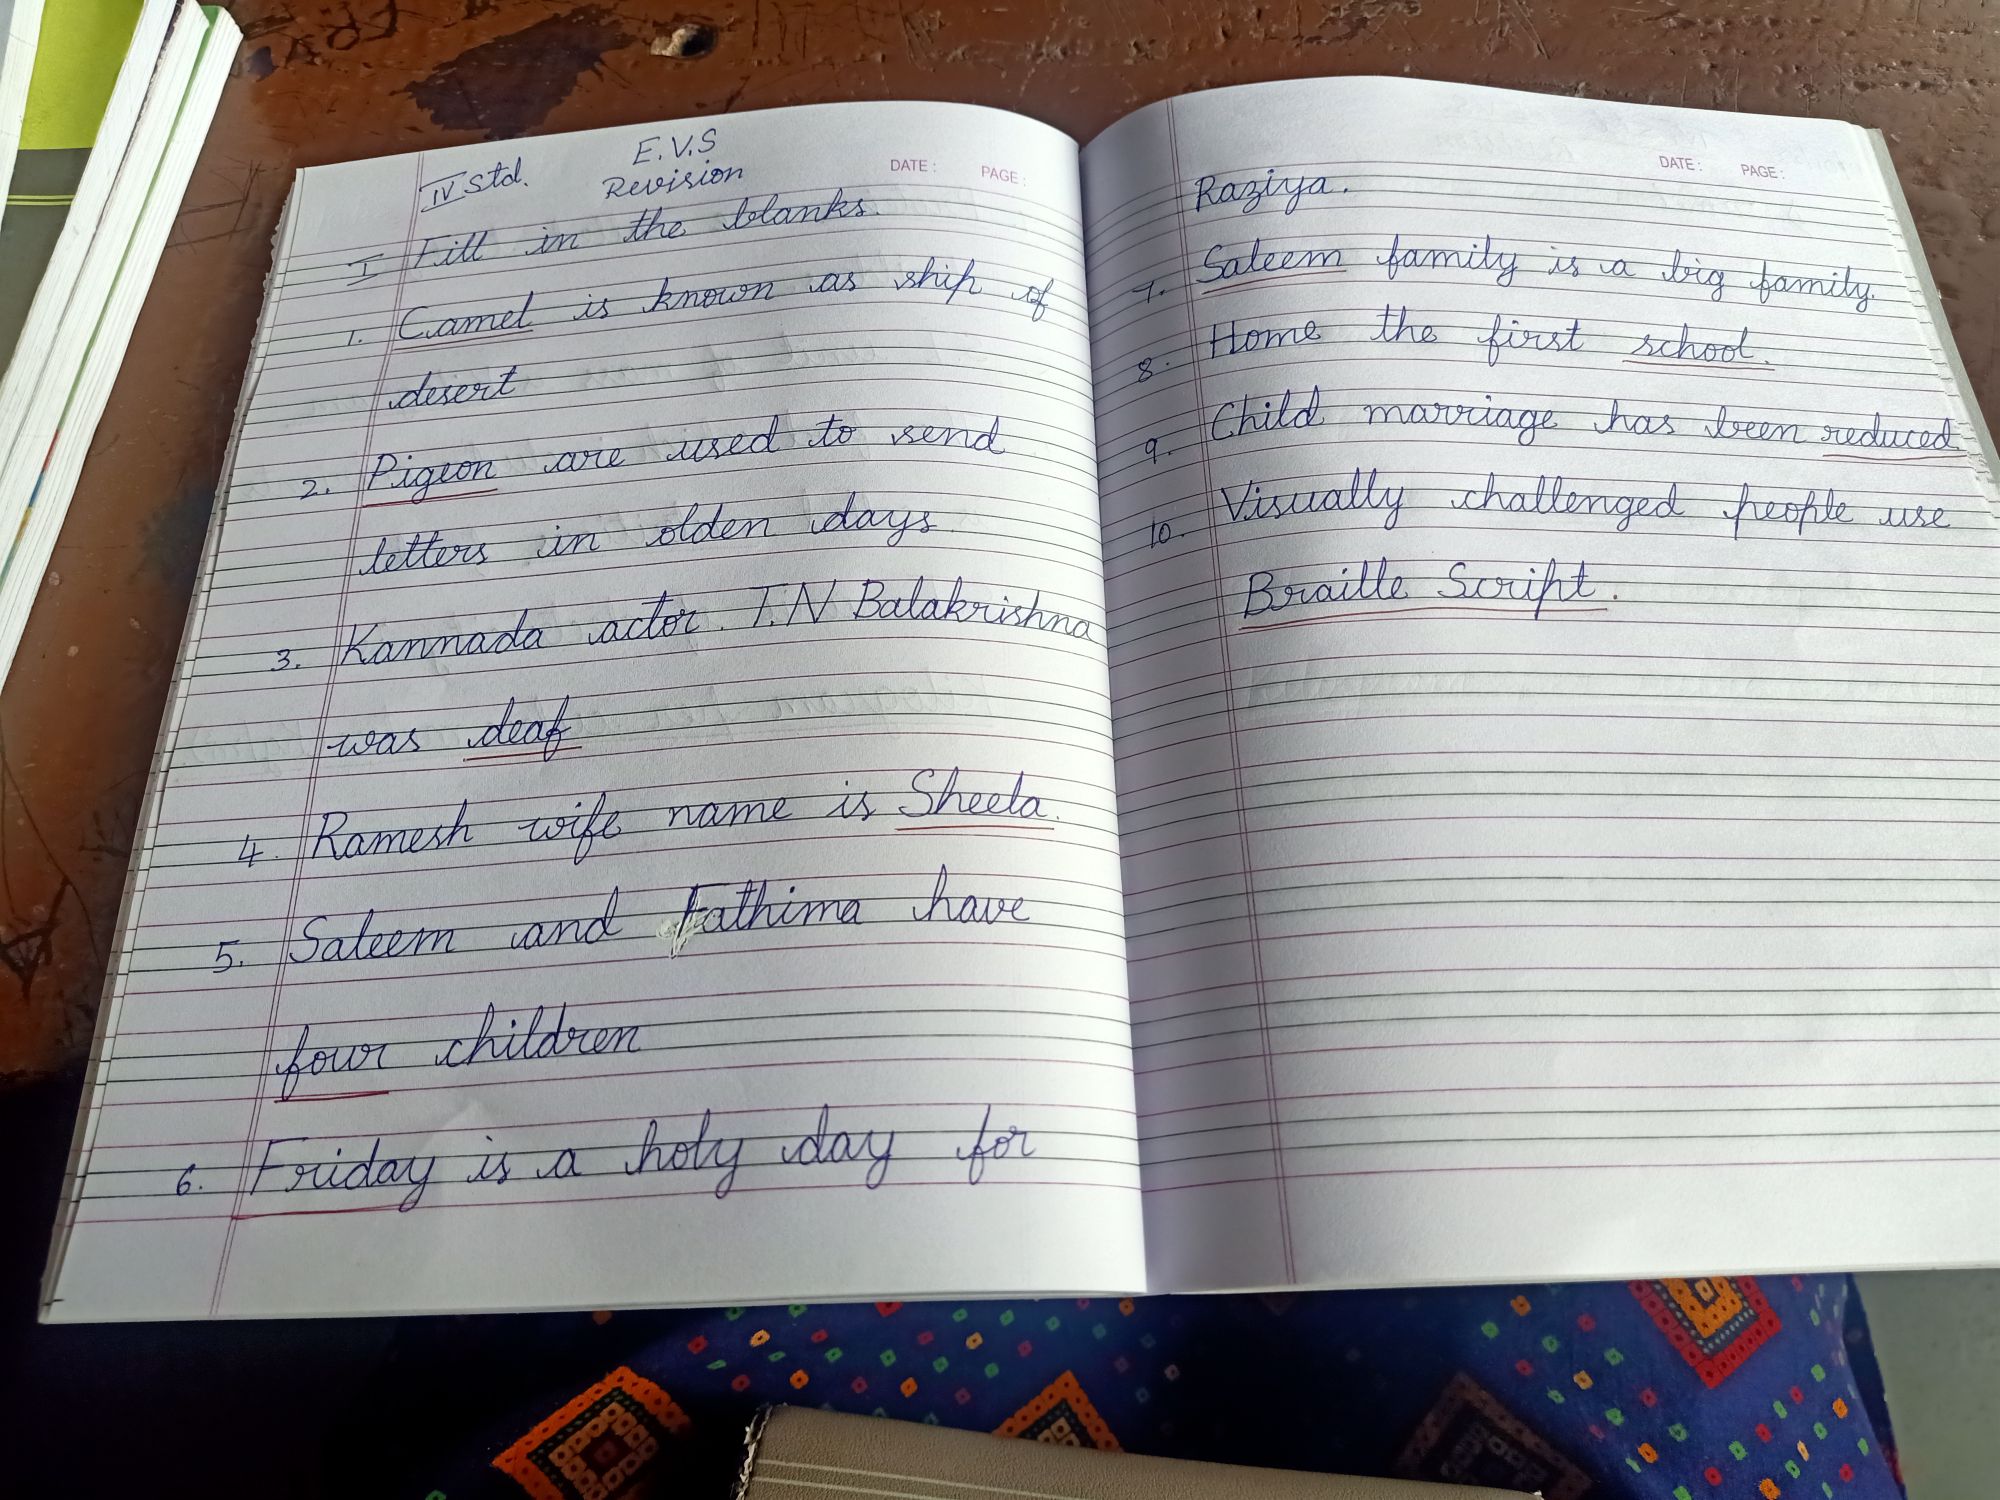 IV Std.
E.V.S
Revision
DATE: PAGE:
I Fill in the blanks.
1. Camel is known as ship of
desert
2. Pigeon are used to send
letters in olden days
3. Kannada actor. T.N Balakrishna
was deaf
4. Ramesh wife name is Sheela.
5. Saleem and Fathima have
four children
6. Friday is a holy day for
DATE: PAGE:
Raziya.
7. Saleem family is a big family.
8. Home the first school.
9. Child marriage has been reduced
10. Visually challenged people use
Braille Script.